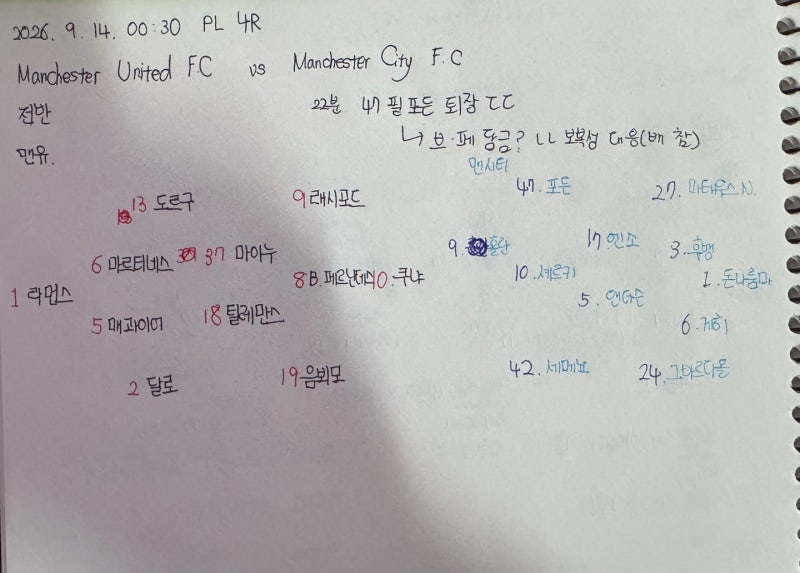 2026. 9. 14. 00:30 PL 4R
Manchester United F.C vs Manchester City F.C
전반 22분 47 필 포든 퇴장 ㄷㄷ
↳ 브·페 당금? ㄴㄴ 보복성 대응(배 참)
맨유. 맨시티
13 도르구 9 래시포드 47. 포든 27. 마테우스 N.
6 마르티네스 37 마이누 9. 홀란 17. 엔소 3. 후뱅
1 라먼스 8 B. 페르난데스 10. 쿠냐 10. 셰르키 5. 앤더슨 1. 돈나룸마
5 매과이어 18 틸레만스 6. 게히
2 달로 19 음뵈모 42. 세메뇨 24. 그바르디올